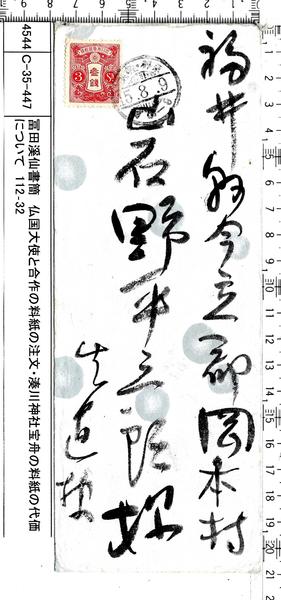 福井県今立郡岡本村
岩野平三郎様
先達
4544 C-35-447
冨田溪仙書簡 仏国大使と合作の料紙の注文・湊川神社宝舟の料紙の代価
について 112-32
3 3
参銭
5.8.9